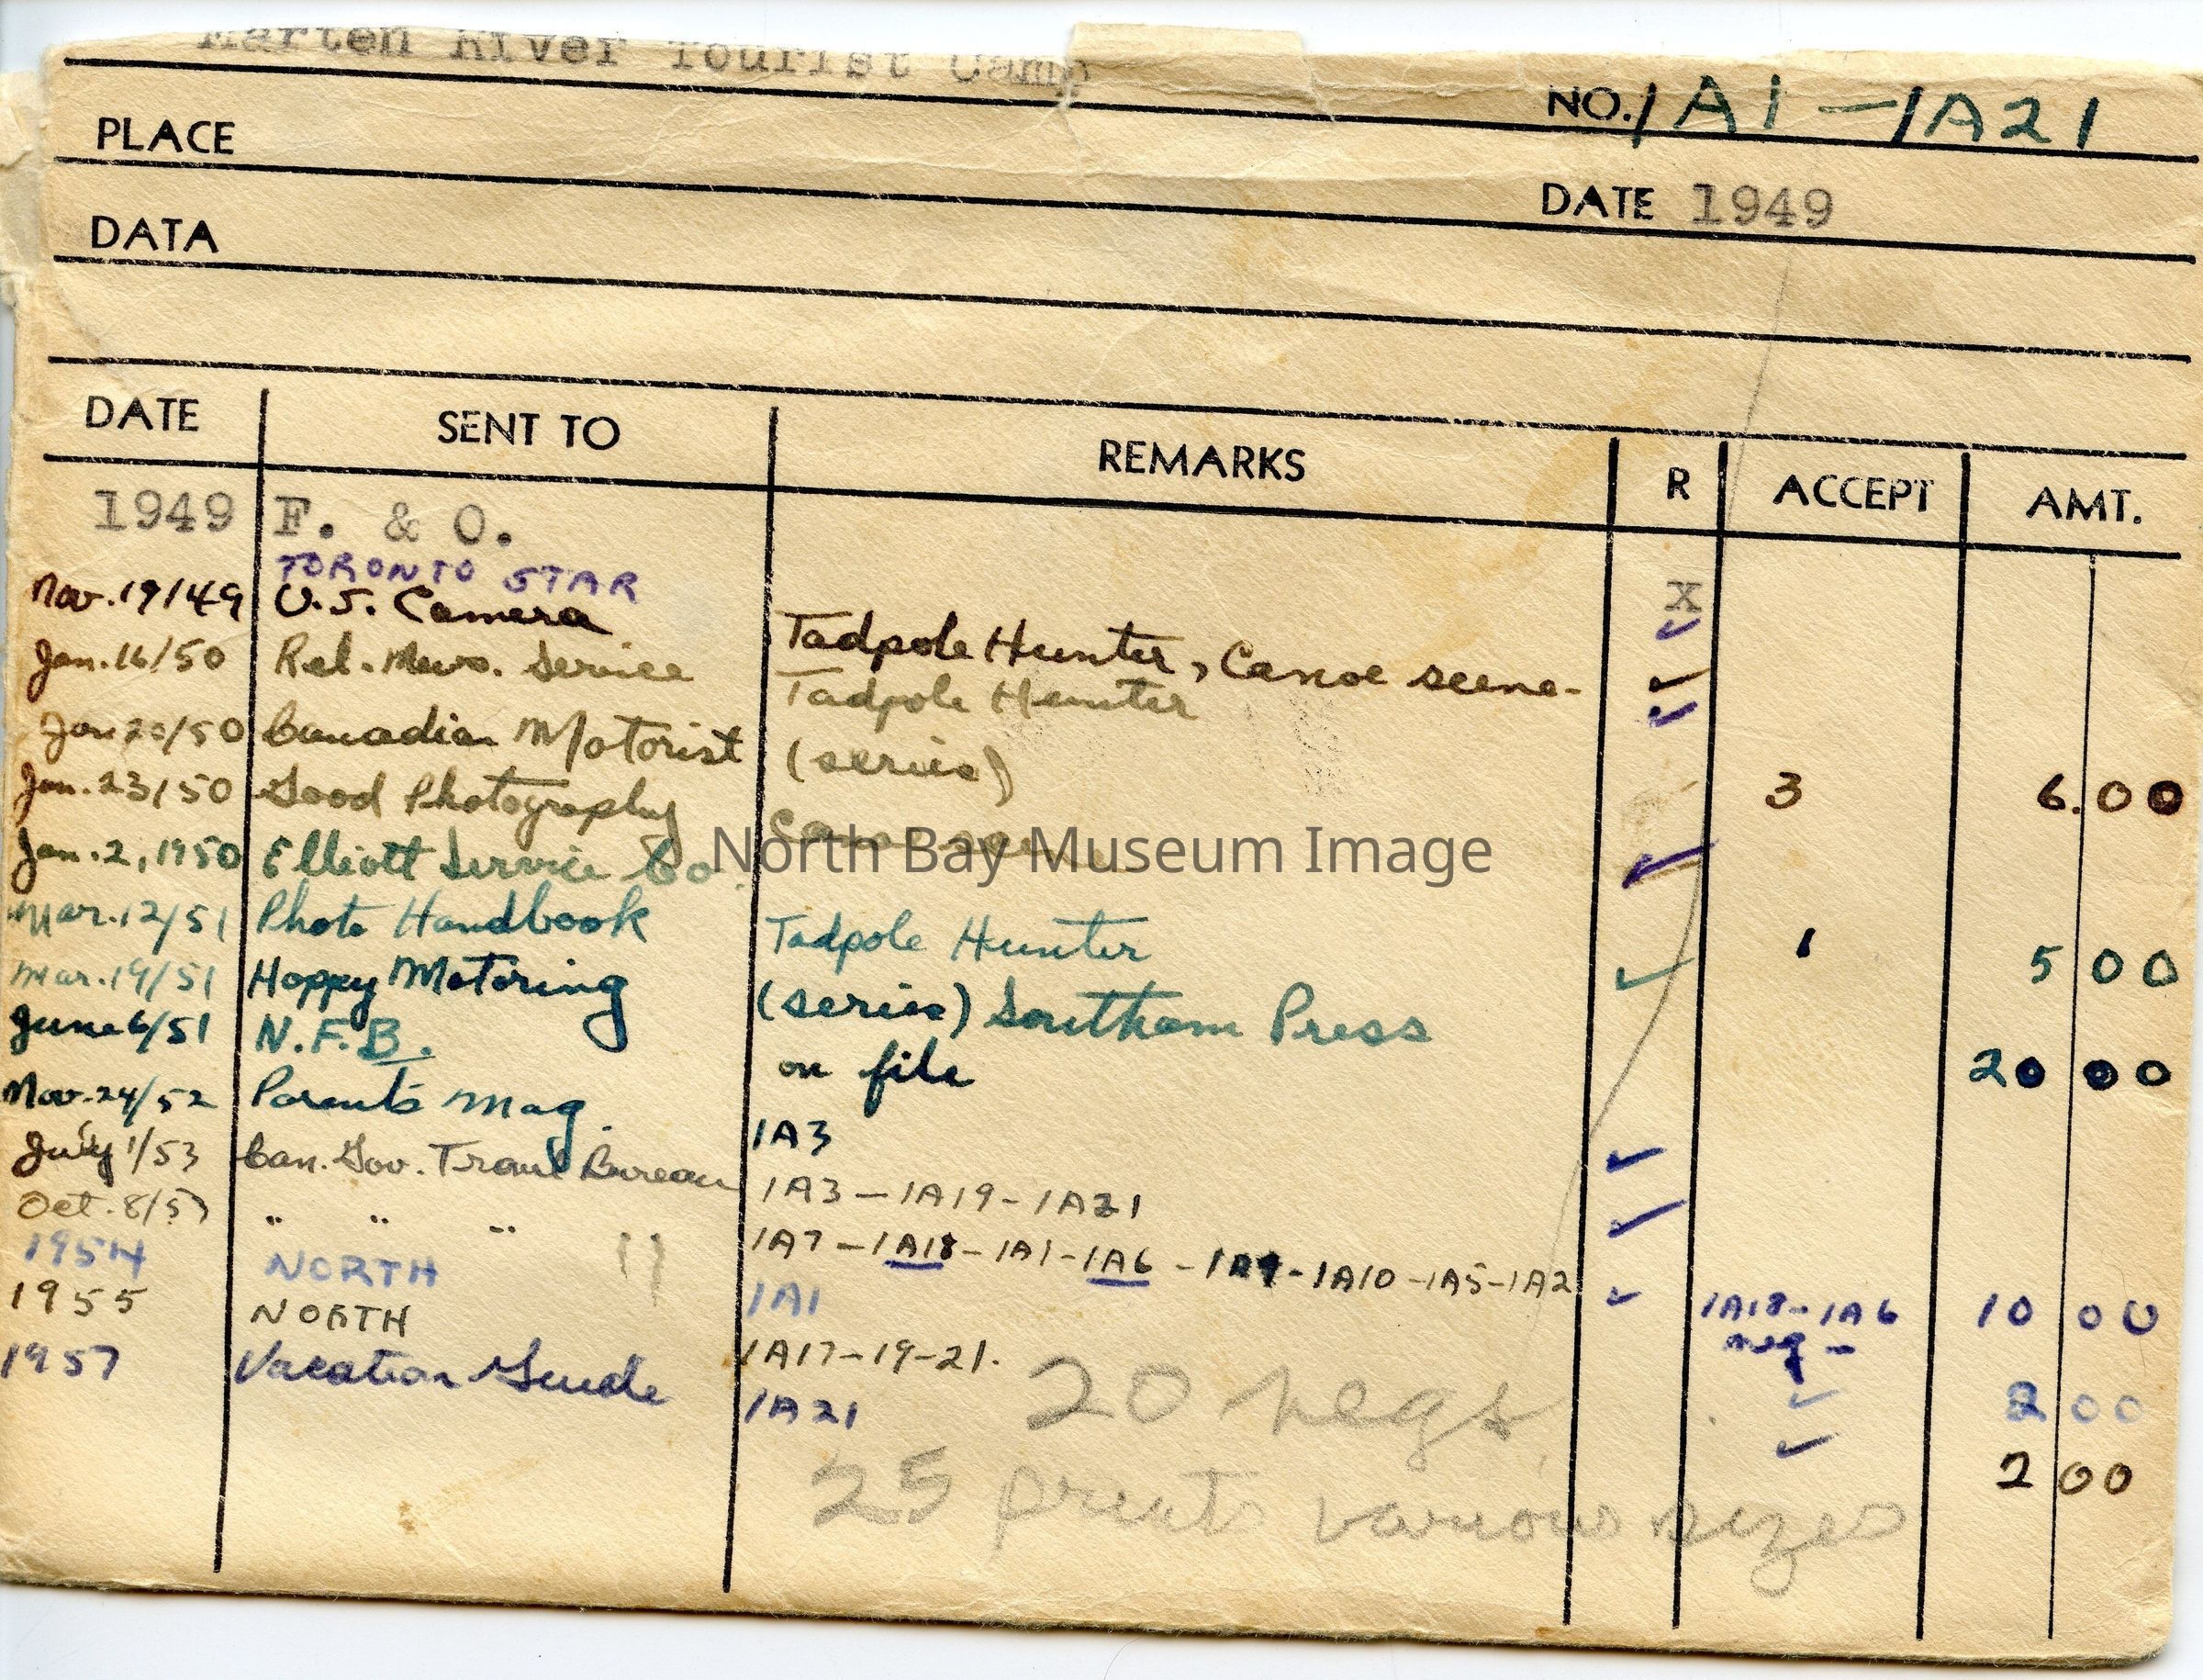 Marten River Tourist Camp
NO. 1A1-1A21
PLACE
DATE 1949
DATA
DATE SENT TO REMARKS R ACCEPT AMT.
1949 F. & O. X
TORONTO STAR ✓
Nov. 19/49 U.S. Camera Tadpole Hunter, Canoe scene- ✓
Jan. 16/50 Rel. News. Service Tadpole Hunter ✓
Jan 20/50 Canadian Motorist (series) 3 6.00
Jan. 23/50 Good Photography ✓
Jan. 2, 1950 Elliott Service Co. 1 5 00
Mar. 12/51 Photo Handbook Tadpole Hunter ✓
Mar. 19/51 Hoppy Motoring (series) Southam Press 20 00
June 6/51 N.F.B. on file
Nov. 24/52 Parents Mag. 1A3 ✓
July 1/53 Can. Gov. Travel Bureau 1A3-1A19-1A21 ✓
Oct. 8/53 " " " " 1A7-1A18-1A1-1A6-1A9-1A10-1A5-1A2 ✓ 1A18-1A6 10 00
neg-
1954 NORTH 1A1 ✓ 2 00
1955 NORTH 1A17-19-21. ✓ 2 00
1957 Vacation Guide 1A21
20 negs
25 prints various sizes
North Bay Museum Image